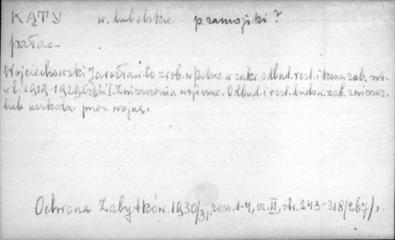 KĄTY w. lubelskie p. zamojski?
pałac
Wojciechowski Jarosław. Co zrob. w Polsce w zakr. odbud. rest. i kons. zab. arch.
w l. 1919-1929. Część I. Zniszczenia wojenne. Odbud. i rest. budow. zab. zniszcz.
lub uszkodz. przez wojnę.
Ochrona Zabytków. 1930/31, zesz. 1-4, cz. II, str. 243-318/267/,